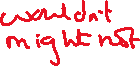 wouldn't
might not